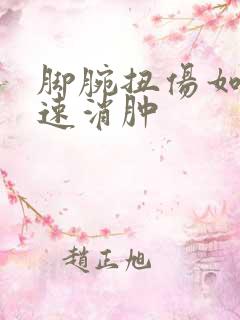 脚腕扭傷如
速消肿
趙正旭